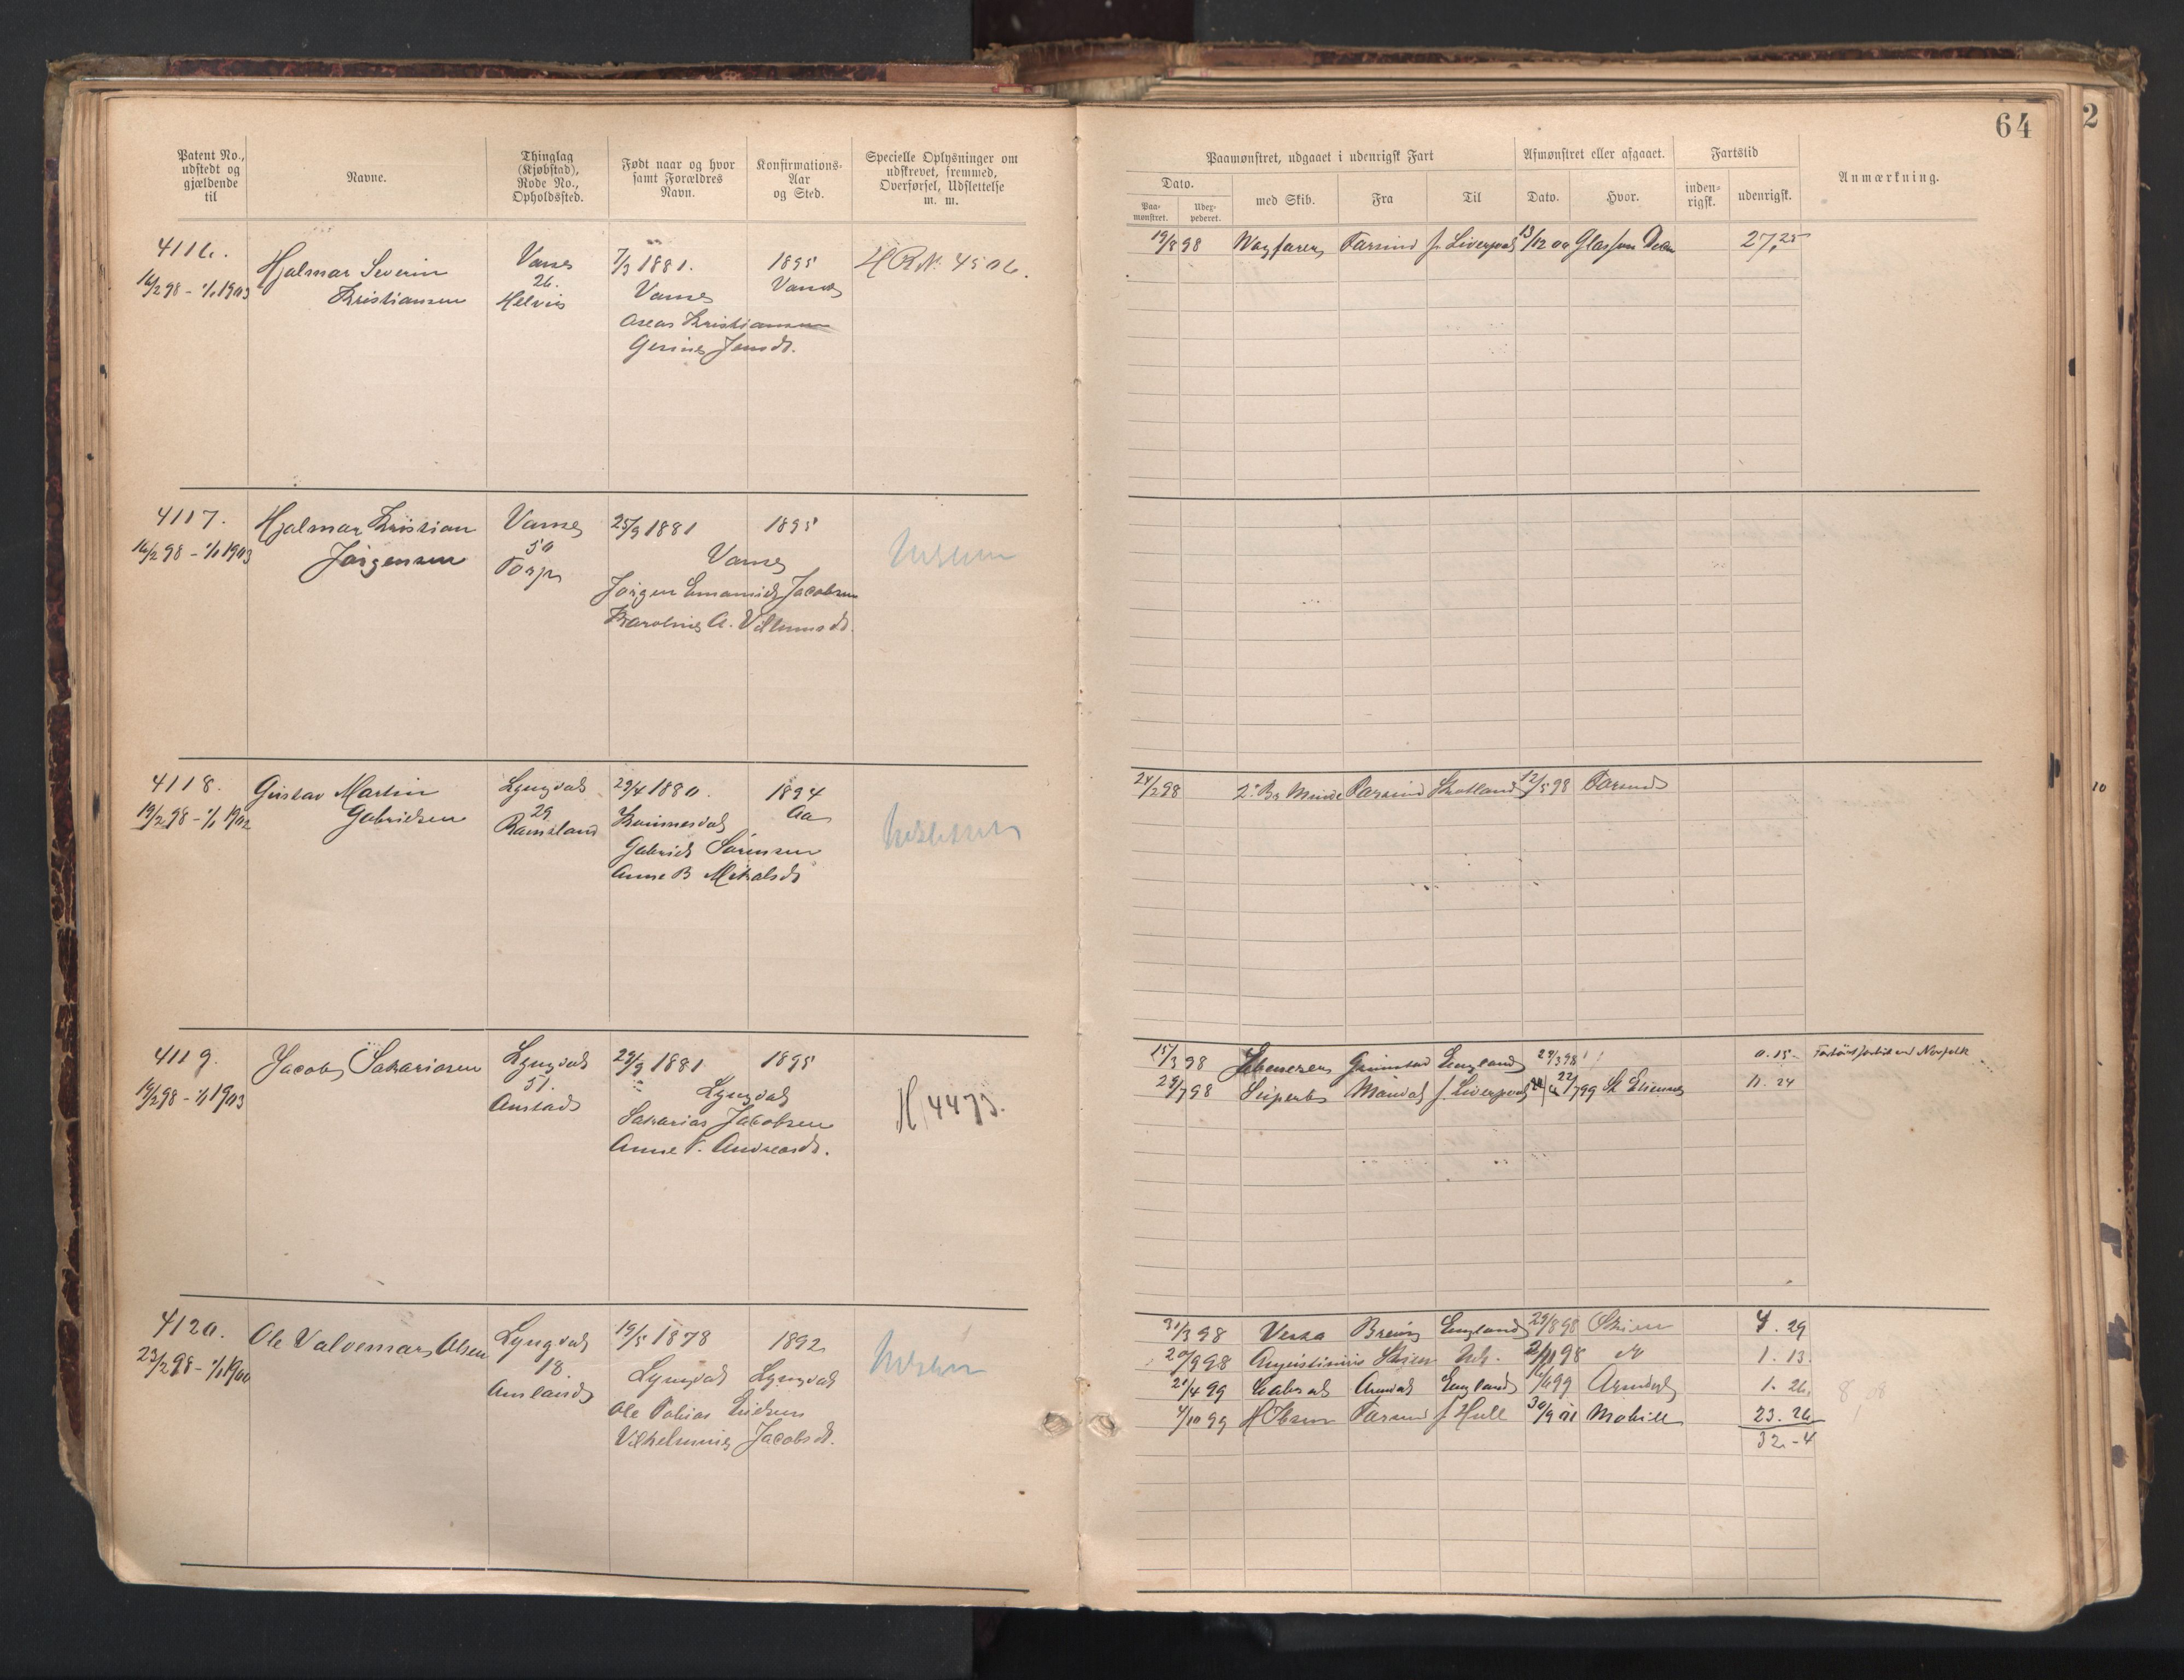 64
2
Patent No., udstedt og gjældende til
Navne.
Thinglag (Kjøbstad), Rode No., Opholdssted.
Født naar og hvor samt Forældres Navn.
Konfirmations-Aar og Sted.
Specielle Oplysninger om udskrevet, fremmed, Overførsel, Udslettelse m. m.
Paamønstret, udgaaet i udenrigsk Fart
Dato.
Paa-mønstret.
Udex-pederet.
med Skib.
Fra
Til
Afmønstret eller afgaaet.
Dato.
Hvor.
Fartstid
inden-rigsk.
udenrigsk.
Anmærkning.
4116.
16/2 98 - 1/1 1903
Hjalmar Severin
Kristiansen
Vanse
26.
Helvig
7/3 1881.
Vanse
Kristiansen
Gesine Jensdt.
1895
Vanse
H R N. 4506.
19/8 98 Wayfarer Farsund f. Liverpool 13/12 00 Glasson 27,25
4117.
16/2 98 - 1/1 1903
Hjalmar Kristian
Jørgensen
Vanse
50
Torp
25/9 1881
1895
Vanse
Jørgen Emanuel Jacobsen
Karoline A.
4118.
19/2 98 - 1/1 1902
Gustav Martin
Gabrielsen
Lyngdal
29
Ramsland
29/4 1880.
Gabriel Sørensen
Anne B Mikalsdt
1894
Aa
24/2 98 2 Br Minde Farsund Skotland 12/5 98 Farsund
4119.
19/2 98 - 1/1 1903
Jacob Sakariasen
Lyngdal
51.
Anstad
29/9 1881
1895
Lyngdal
Sakarias Jacobsen
Anne T. Andreasdt.
H 4475.
15/3 98 Ebenezer Grimstad England 29/3 98 0.15
29/7 98 Mandal f. Liverpool 22/7 99 St Etienne 11. 24
4120.
23/2 98 - 1/1 1900
Ole Valdemar Olsen
Lyngdal
18.
Amland
19/5 1878
1892
Lyngdal Lyngdal
Ole Tobias
Vilhelmine Jacobsdt.
31/3 98 Vesta Brevig England 29/8 98 Skien 4. 29
20/9 98 Augustinus Skien 98 1. 13.
21/4 99 Arendal England 99 Arendal 1. 26
4/10 99 H Ibsen Farsund f. Hull 30/9 01 Mobile 23. 26
32 - 4